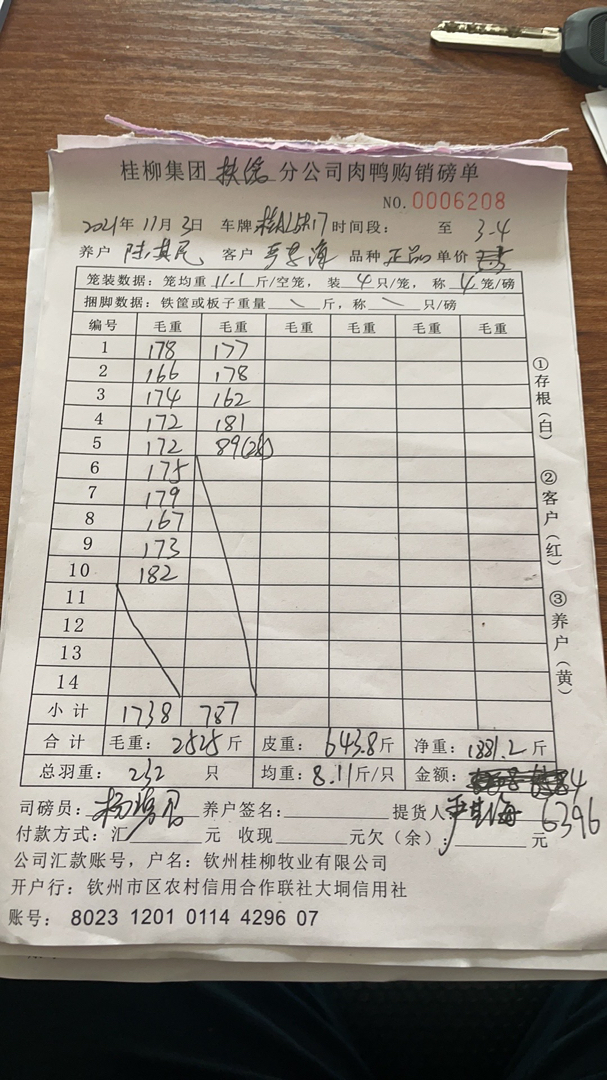 桂柳集团 扶绥 分公司肉鸭购销磅单
NO.0006208
2021年11月3日 车牌 时间段: 至 3.4
养户 陆其 客户 严 海 品种 正品 单价
笼装数据: 笼均重 11.1 斤/空笼, 装 4 只/笼, 称 4 笼/磅
捆脚数据: 铁筐或板子重量 \ 斤, 称 \ 只/磅
编号 毛重 毛重 毛重 毛重 毛重 毛重
1 178 177
2 166 178
3 174 162
4 172 181
5 172 89(2笼)
6 175
7 179
8 167
9 173
10 182
11
12
13
14
小计 1738 787
合计 毛重: 2525 斤 皮重: 643.8 斤 净重: 1881.2 斤
总羽重: 232 只 均重: 8.11 斤/只 金额:
司磅员: 杨 养户签名: 提货人 严 海 6396
付款方式: 汇 元 收现 元欠(余): 元
公司汇款账号, 户名: 钦州桂柳牧业有限公司
开户行: 钦州市区农村信用合作联社大垌信用社
账号: 8023 1201 0114 4296 07
①存根(白)
②客户(红)
③养户(黄)